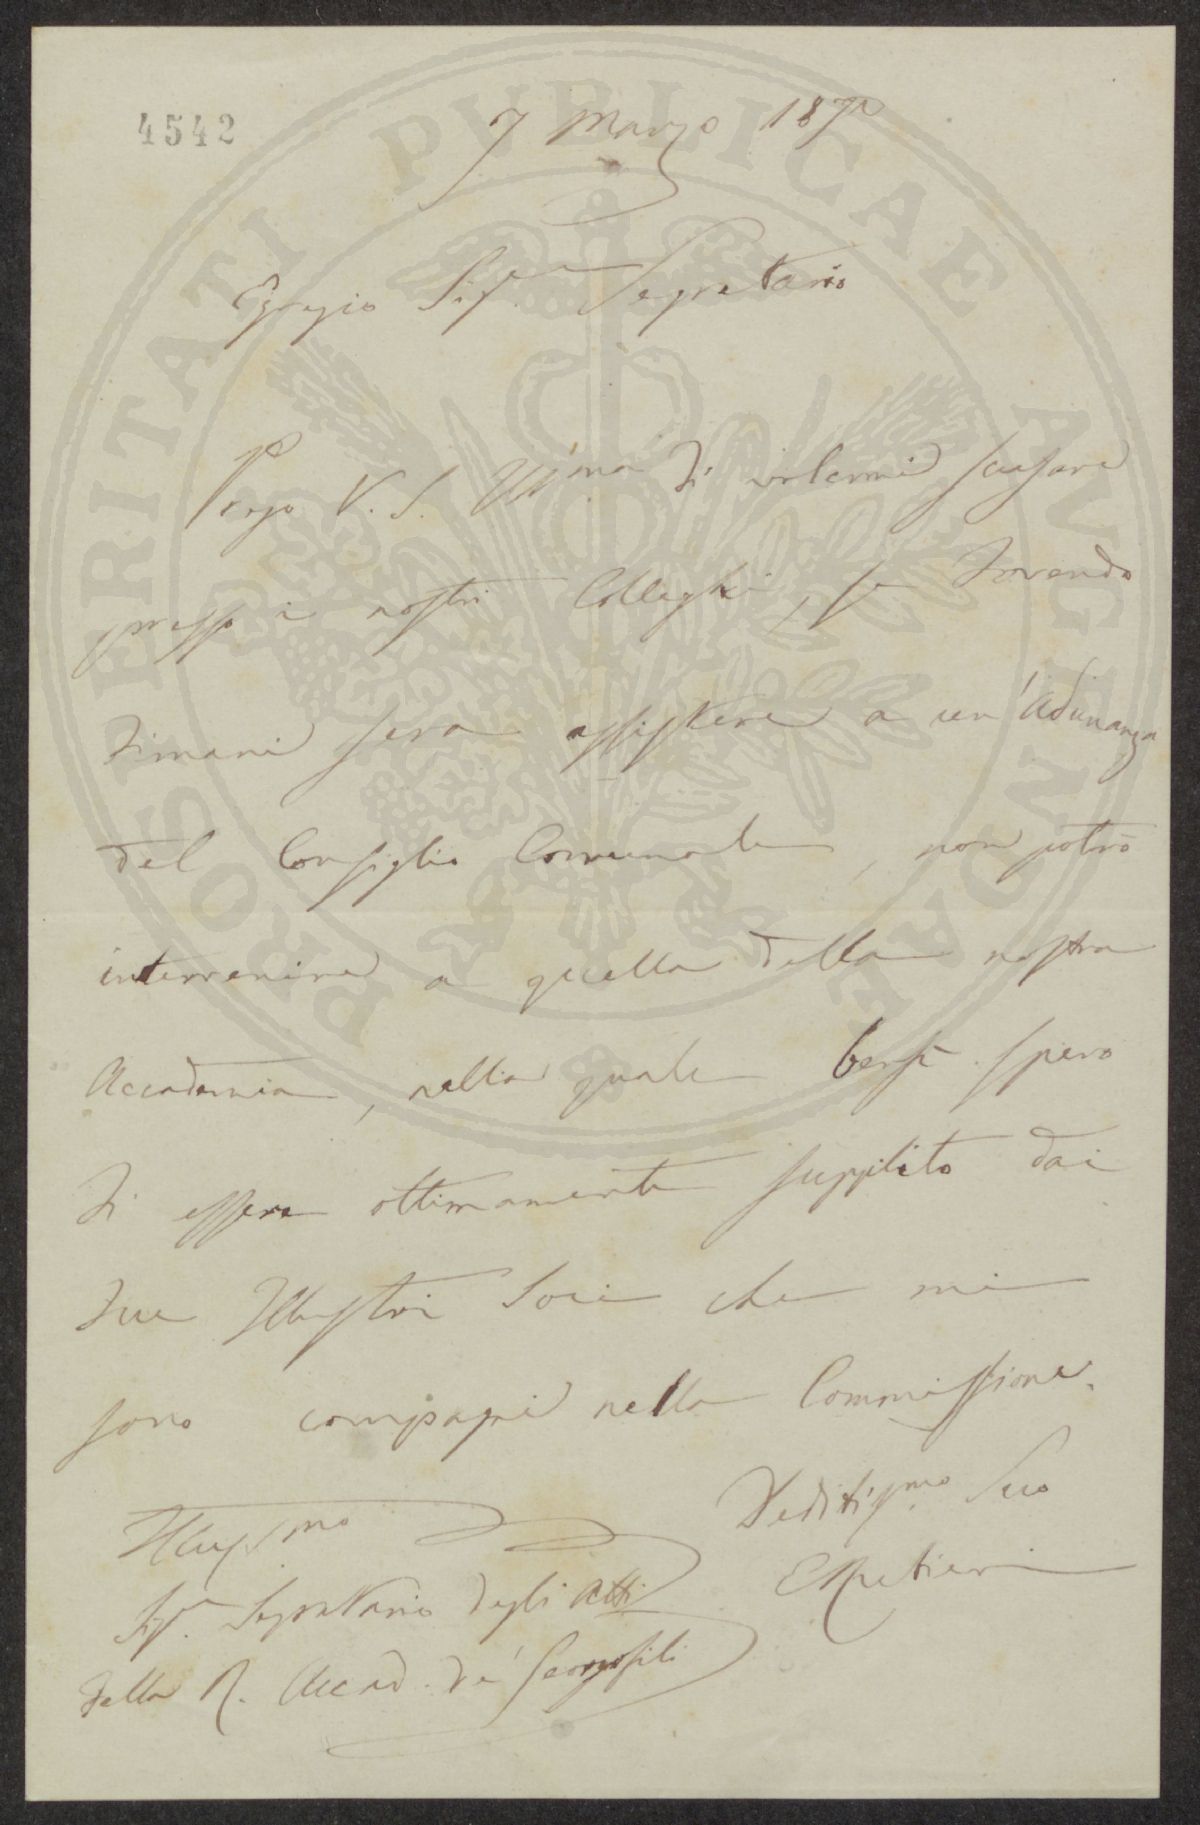 4542
7 Marzo 1870
Egregio Sigre Segretario
Prego V. S. Illma di volermi scusare
presso i nostri Colleghi, se dovendo
dimani sera assistere a un'adunanza
del Consiglio Comunale, non potrò
intervenire a quella della nostra
Accademia, nella quale bensì spero
di essere ottimamente supplito dai
due Illustri Soci che mi
sono compagni nella Commissione.
Deditissmo Suo
Illussmo
Sigr. Segretario degli Atti
della R. Accad. de' Georgofili
PROSPERITATI PVBLICAE AVGENDAE